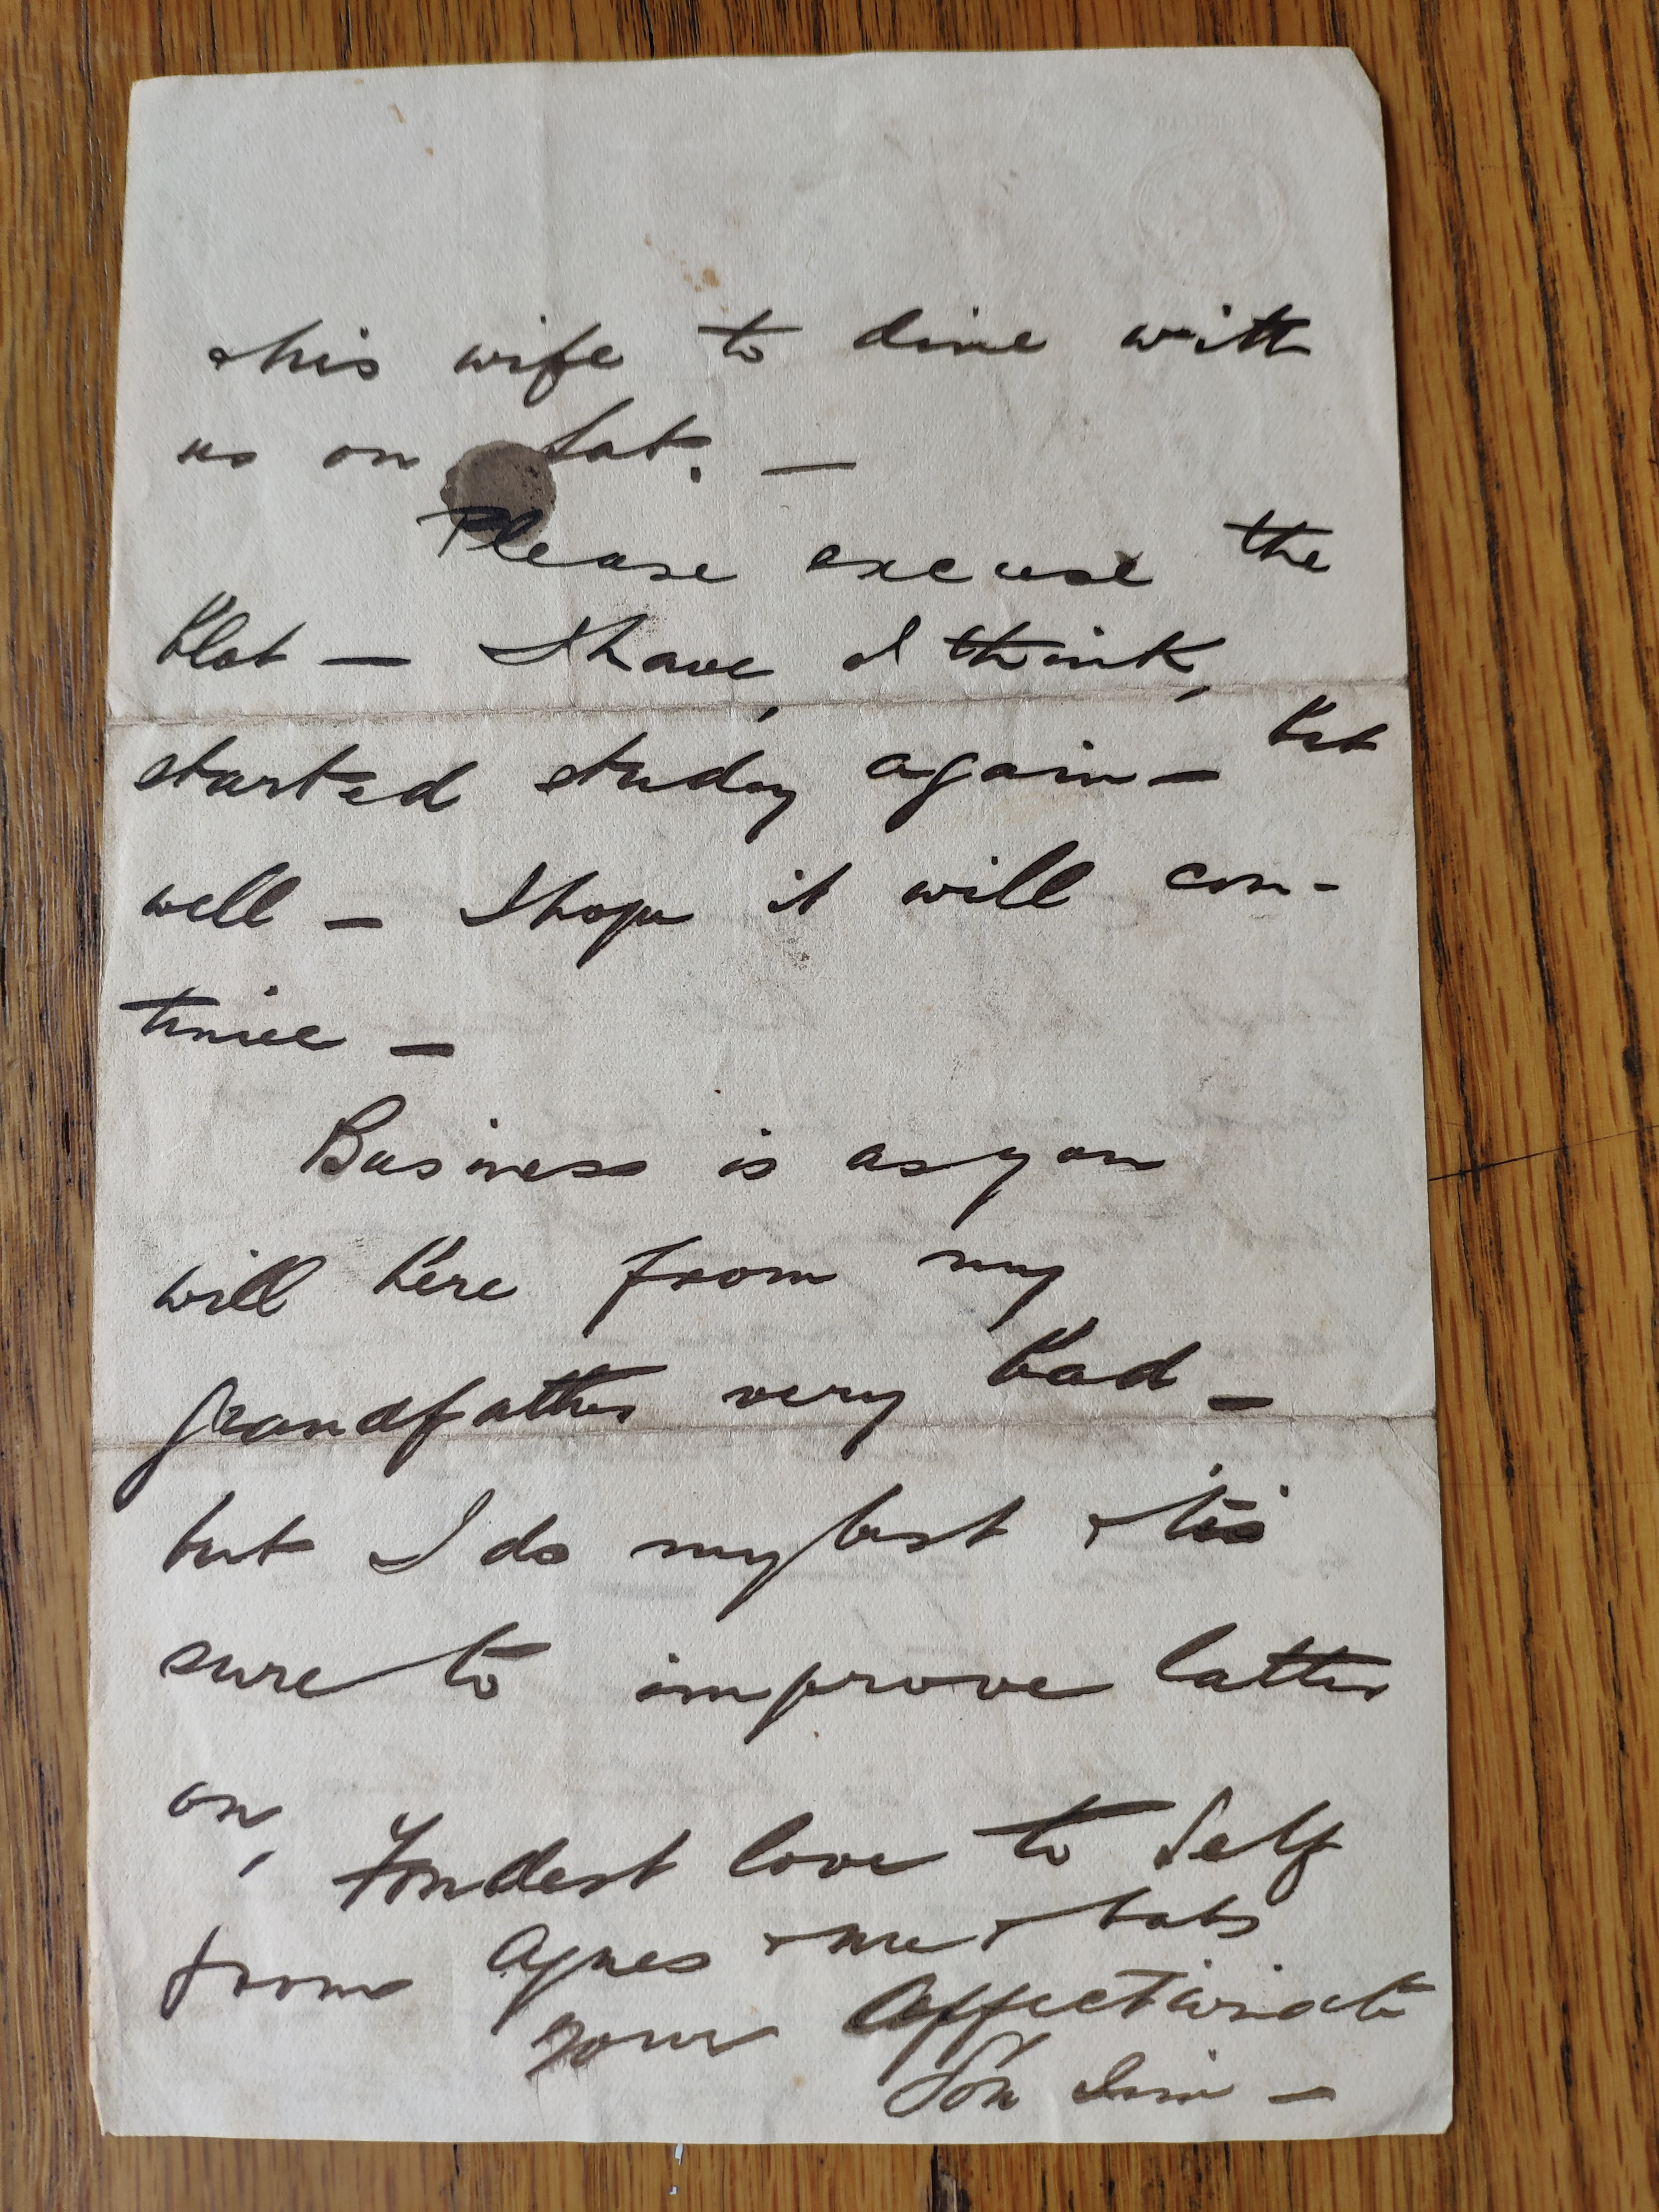 & his wife to dine with
us on Sat. —
Please excuse the
blot — I have, I think,
started study again — but
well — I hope it will con-
tinue —
Business is as you
will here from my
grandfather very bad —
but I do my best & tis
sure to improve latter
on,
Fondest love to Self
from Agnes & me & babs
your affectionate
Son Jim —